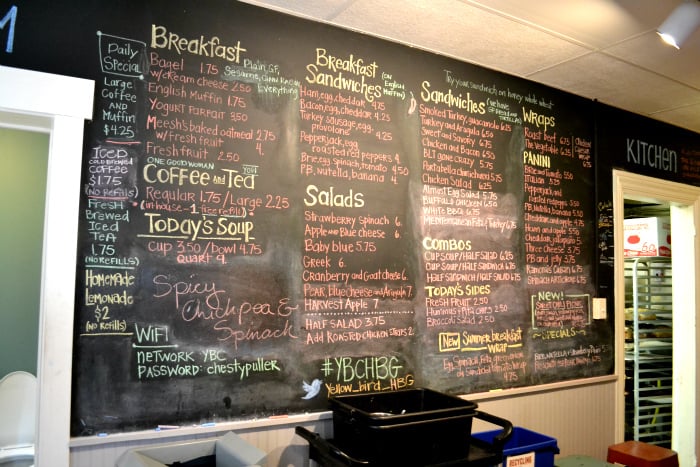 Daily
Special
Large
Coffee
AND
Muffin
$4.25
ICED
COLD BREWED
COFFEE
$1.75
(NO REFILLS)
Fresh
Brewed
Iced
Tea
1.75
(NO REFILLS)
Homemade
Lemonade
$2
(No refills)
Breakfast
Bagel 1.75
w/cream cheese 2.50
Plain, GF,
Everything
English Muffin 1.75
Yogurt Parfait 3.50
Meesh's baked oatmeal 2.75
w/fresh fruit 4.
Fresh fruit 2.50
ONE GOOD WOMAN
Coffee and Tea
Regular 1.75/Large 2.25
(in house = 1 free refill)
Today's Soup
Cup 3.50/Bowl 4.75
Quart 9.
Spicy
Chickpea &
Spinach
WIFI
network YBC
PASSWORD: chestypuller
Breakfast
Sandwiches
(on
English
Muffin)
Ham, egg, cheddar 4.75
Bacon, egg, cheddar 4.25
Turkey sausage, egg,
provolone 4.25
Pepperjack, egg
roasted red peppers 4.
Brie, egg, spinach, tomato 4.50
PB, nutella, banana 4.
Salads
Strawberry Spinach 6.
Apple and Blue cheese 6.
Baby blue 5.75
Greek 6.
Cranberry and Goat cheese 6.
Pear, blue cheese and Arugula 7
Harvest Apple 7
HALF SALAD 3.75
Add Roasted Chicken 2.
#YBCHBG
Yellow_bird_HBG
Try your sandwich on honey whole wheat
Sandwiches
Smoked Turkey, guacamole 6.75
Turkey and Arugula 6.50
Sweet and Savory 6.75
Chicken and Bacon 6.50
BLT gone crazy 5.75
Portabella
Chicken Salad 6.25
Almost Egg Salad 5.75
Buffalo chicken 6.75
White BBQ 6.75
Mediterranean Turkey 6.75
Combos
Cup Soup/Half Salad 6.25
Cup Soup/Half Sandwich 6.75
Half Sandwich/Half Salad 6.75
Today's Sides
Fresh Fruit 2.50
Hummus + Pita chips 2.50
Broccoli Salad 2.50
NEW Summer breakfast
wrap
4.75
Wraps
Roast Beef 6.75
The Vegetable
Panini
Brie and Tomato
Pepperjack and
roasted red peppers
PB, Nutella, Banana
Cheddar and apple
Ham and apple
Cheddar, jalapeño
Three Cheese
PB and jelly
Ramona's Cuban 6.75
Spinach Artichoke
NEW!
SPECIALS
Kitchen
RECYCLING